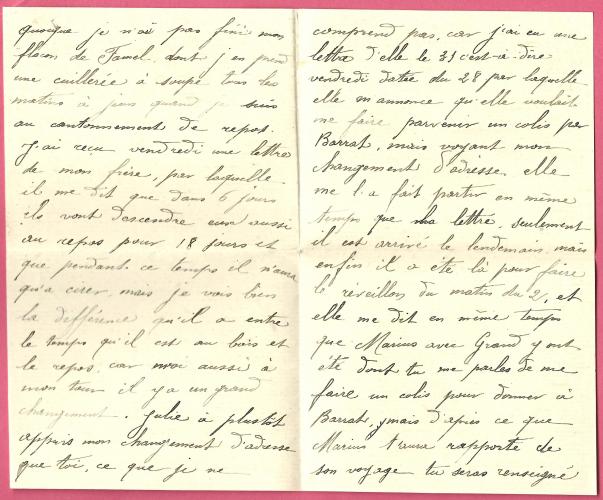 quoique je n'ai pas fini mon
flacon de Famel dont j'en prend
une cuillerée à soupe tous les
matins à jeun quand je suis
au cantonnement de repos.
J'ai reçu vendredi une lettre
de mon frère, par laquelle
il me dit que dans 6 jours
ils vont descendre eux aussi
au repos pour 18 jours et
que pendant ce temps il n'aura
qu'a cirer, mais je vois bien
la différence qu'il a entre
le temps qu'il est au bois et
le repos, car moi aussi à
mon tour il y a un grand
changement. Julie à plustôt
appris mon changement d'adresse
que toi, ce que je ne
comprend pas, car j'ai eu une
lettre d'elle le 31 c'est-à-dire
vendredi datée du 28 par laquelle
elle m'annonce qu'elle voulait
me faire parvenir un colis par
Barrat, mais voyant mon
changement d'adresse, elle
me l'a fait partir en même
temps que ma lettre, seulement
il est arrivé le lendemain, mais
enfin il a été là pour faire
le réveillon du matin du 2, et
elle me dit en même temps
que Marius avec Grand y ont
été dont tu me parles de me
faire un colis pour donner à
Barrat, mais d'après ce que
Marius t'aura rapporté de
son voyage tu seras renseigné